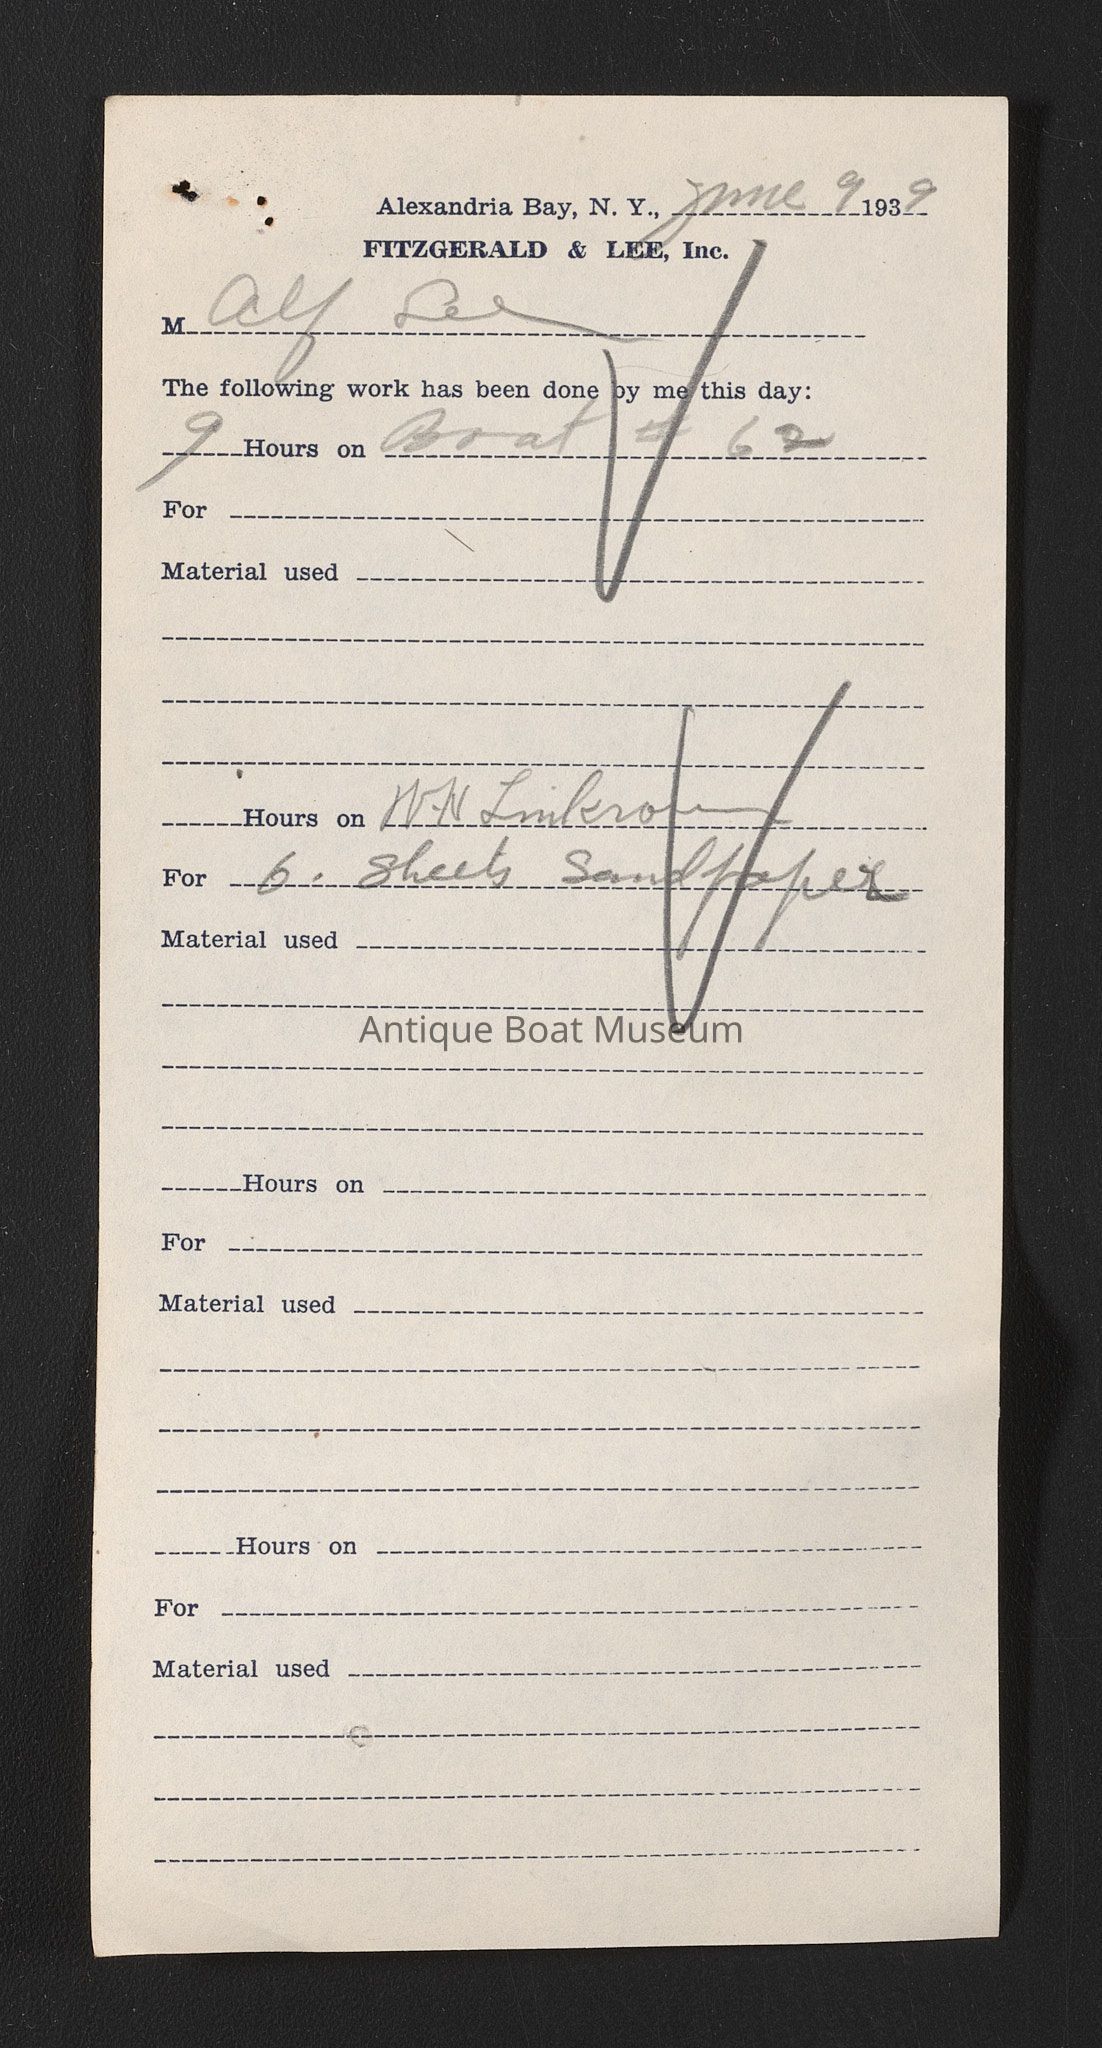 Alexandria Bay, N. Y., June 9 1939
FITZGERALD & LEE, Inc.
M Alf Lee
The following work has been done by me this day:
9 Hours on Boat # 62
For
Material used
Hours on W.H.
For 6. Sheets Sandpaper
Material used
Antique Boat Museum
Hours on
For
Material used
Hours on
For
Material used